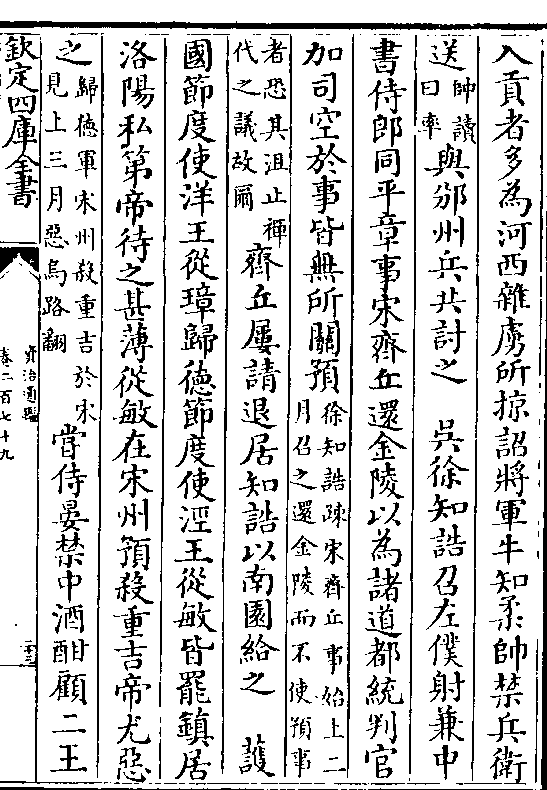 入貢者多為河西雜虜所掠詔將軍牛知柔帥禁兵衛
送帥讀曰率與邠州兵共討之　吳徐知誥召左僕射兼中
書侍郎同平章事宋齊丘還金陵以為諸道都統判官
加司空於事皆無所關預徐知誥疎宋齊丘事始上二月召之還金陵而不使預事
者恐其沮止禪代之議故爾齊丘屢請退居知誥以南園給之　護
國節度使洋王從璋歸德節度使涇王從敏皆罷鎮居
洛陽私第帝待之甚薄從敏在宋州預殺重吉帝尤惡
之歸德軍宋州殺重吉於宋見上三月惡烏路翻嘗侍宴禁中酒酣顧二王
欽定四庫全書
資治通鑑
卷二百七十九